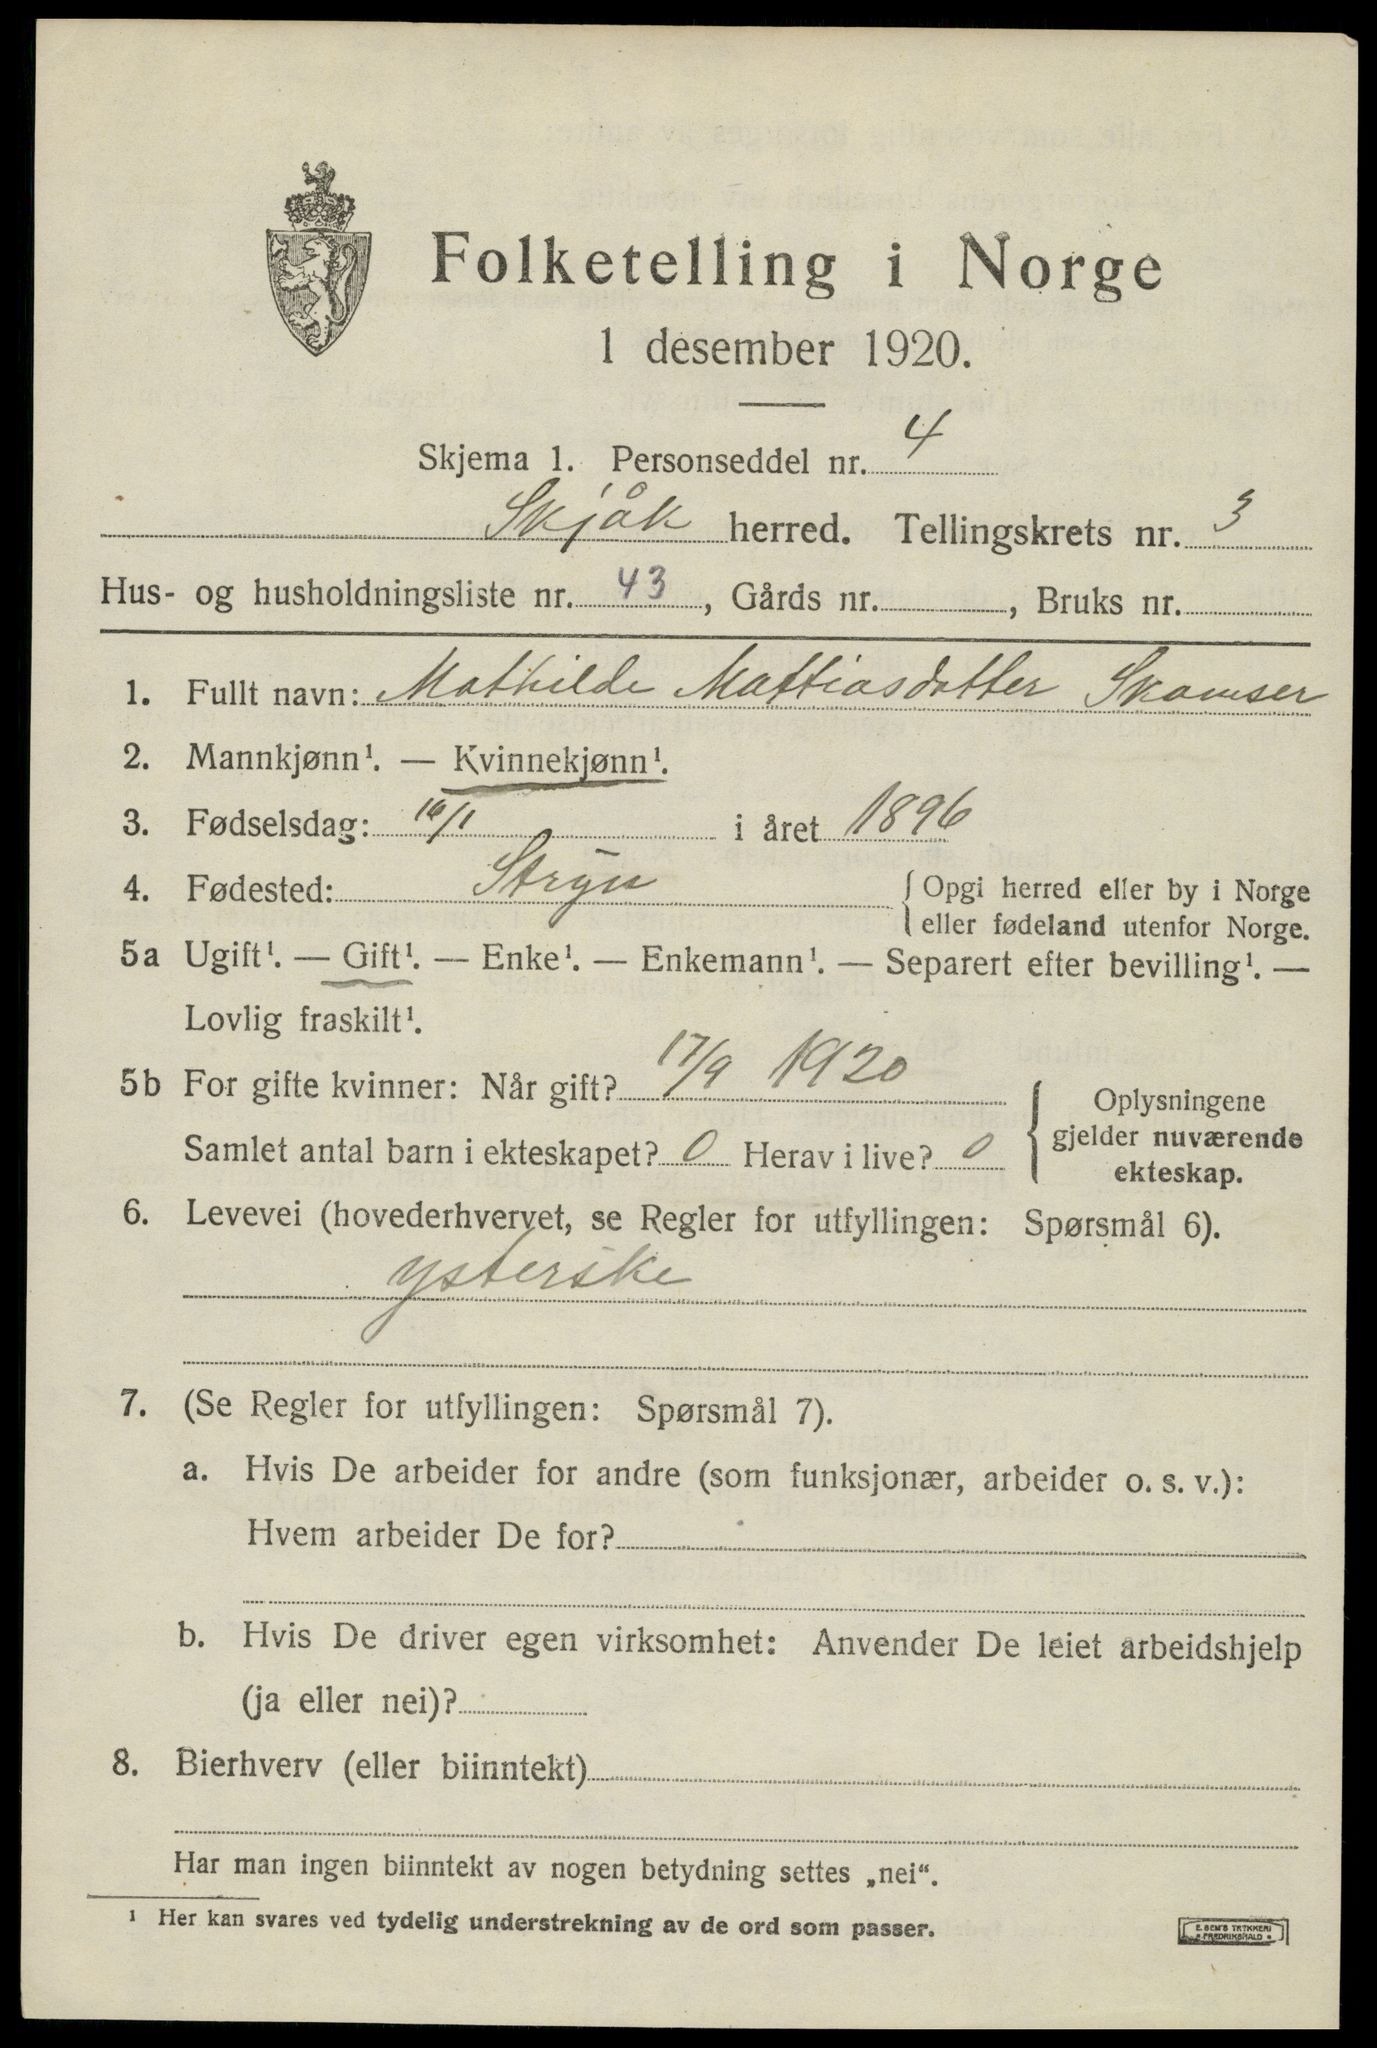 Folketelling i Norge
1 desember 1920.
Skjema 1. Personseddel nr. 4
Skjåk herred. Tellingskrets nr. 3
Hus- og husholdningsliste nr. 43, Gårds nr. , Bruks nr.
1. Fullt navn: Mathilde Mattiasdotter Skamser
2. Mannkjønn¹. — Kvinnekjønn¹.
3. Fødselsdag: 16/1 i året 1896
4. Fødested: Stryn {Opgi herred eller by i Norge
eller fødeland utenfor Norge.
5a Ugift¹. — Gift¹. — Enke¹. — Enkemann¹. — Separert efter bevilling¹. —
Lovlig fraskilt¹.
5b For gifte kvinner: Når gift? 17/9 1920
Samlet antal barn i ekteskapet? 0 Herav i live? 0
{Oplysningene
gjelder nuværende
ekteskap.
6. Levevei (hovederhvervet, se Regler for utfyllingen: Spørsmål 6).
ysterske
7. (Se Regler for utfyllingen: Spørsmål 7).
a. Hvis De arbeider for andre (som funksjonær, arbeider o. s. v.):
Hvem arbeider De for?
b. Hvis De driver egen virksomhet: Anvender De leiet arbeidshjelp
(ja eller nei)?
8. Bierhverv (eller biinntekt)
Har man ingen biinntekt av nogen betydning settes „nei“.
¹ Her kan svares ved tydelig understrekning av de ord som passer.
E. SEM'S TRYKKERI
FREDRIKSHALD